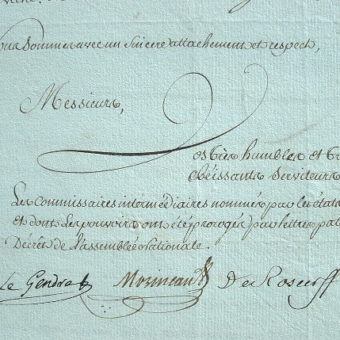 ous sommes avec un sincere attachement et respect,
Messieurs,
os très humbles et
obéissants serviteurs
Les commissaires intermédiaires nommés par les états
et dont les pouvoirs ont été prorogés par lettres pat
Décret de l'assemblée nationale.
Le Gendre Morineau De Roscorff